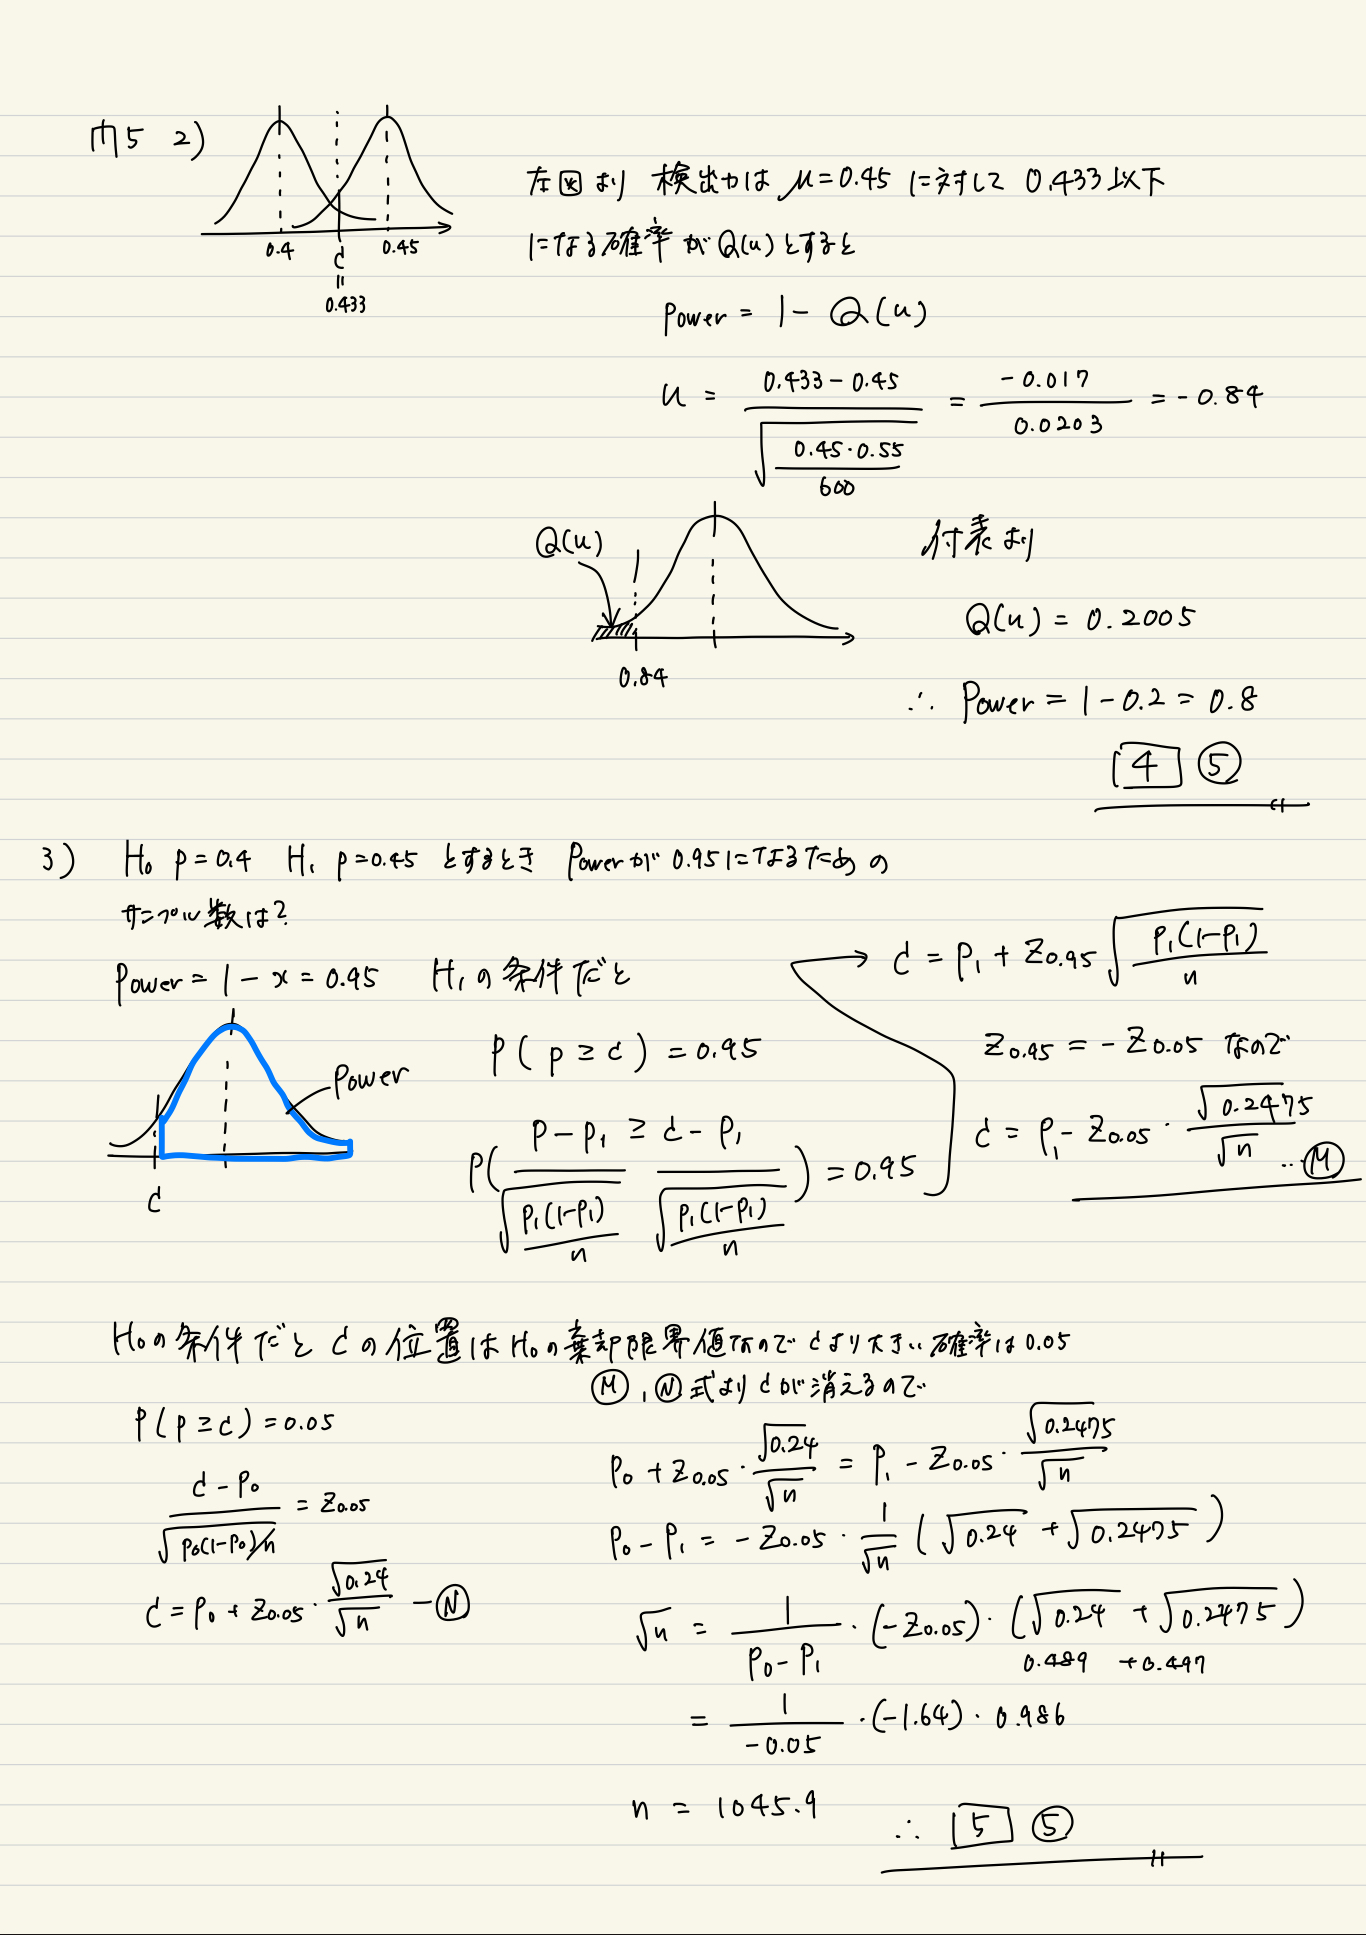 問5 2)
0.4 c 0.45
=
0.433
左図より 検出力は μ=0.45 に対して 0.433以下
になる確率が Q(u)とすると
Power = 1 - Q(u)
u = (0.433-0.45)/√(0.45·0.55/600) = -0.017/0.0203 = -0.84
Q(u)
0.84
付表より
Q(u) = 0.2005
∴ Power = 1-0.2 = 0.8
4 ⑤
3) H₀ p=0.4 H₁ p=0.45 とするとき Powerが 0.95になるための
サンプル数は?
Power = 1-x = 0.95 H₁の条件だと
Power
c
P(p≥c) = 0.95
P((p-p₁)/√(p₁(1-p₁)/n) ≥ (c-p₁)/√(p₁(1-p₁)/n)) = 0.95
→ c = p₁ + Z0.95 √(p₁(1-p₁)/n)
Z0.95 = -Z0.05 なので
c = p₁ - Z0.05 · √0.2475/√n …Ⓜ
H₀の条件だと cの位置は H₀の棄却限界値なので cより大きい確率は0.05
P(p≥c)=0.05
(c-p₀)/√(p₀(1-p₀)/n) = Z0.05
c = p₀ + Z0.05 · √0.24/√n -Ⓝ
Ⓜ, Ⓝ式より cが消えるので
p₀ + Z0.05 · √0.24/√n = p₁ - Z0.05 · √0.2475/√n
p₀-p₁ = -Z0.05 · 1/√n (√0.24 + √0.2475)
√n = 1/(p₀-p₁) · (-Z0.05) · (√0.24 + √0.2475)
0.489 + 0.497
= 1/-0.05 · (-1.64) · 0.986
n = 1045.9
∴ 5 ⑤